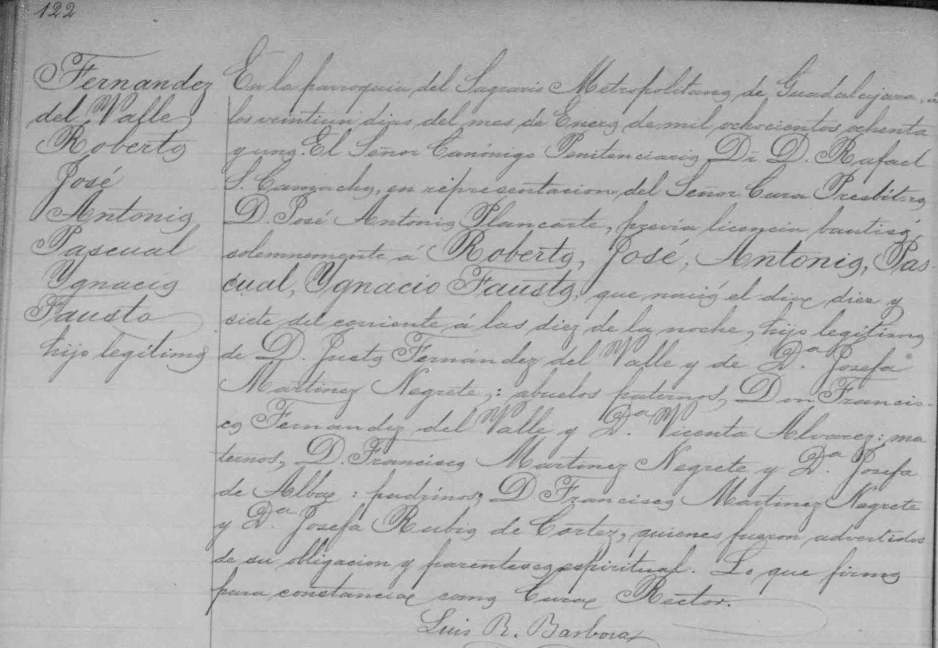 122
Fernandez
del Valle
Roberto
José
Antonio
Pascual
Ygnacio
Fausto
hijo legítimo
En la parroquia del Sagrario Metropolitano de Guadalajara, á
los veintiun dias del mes de Enero de mil ochocientos ochenta
y uno. El Señor Canónigo Penitenciario, Dr. D. Rafael
S. Camacho, en representacion del Señor Cura Presbítero
D. José Antonio Plancarte, prévia licencia bautisó
solemnemente á Roberto, José, Antonio, Pas-
cual, Ygnacio Fausto, que nació el dia diez y
siete del corriente á las diez de la noche, hijo legítimo
de D. Justo Fernández del Valle y de Dª Josefa
Martinez Negrete,: abuelos paternos, Don Francis-
co Fernandez del Valle y Dª Vicenta Alvarez: ma
ternos, D. Francisco Martinez Negrete y Dª Josefa
de Alba: padrinos, D Francisco Martinez Negrete
y Dª Josefa Rubio de Cortez, quienes fueron advertidos
de su obligacion y parentesco espiritual. Lo que firmo
para constancia como Cura Rector.
Luis R. Barbosa